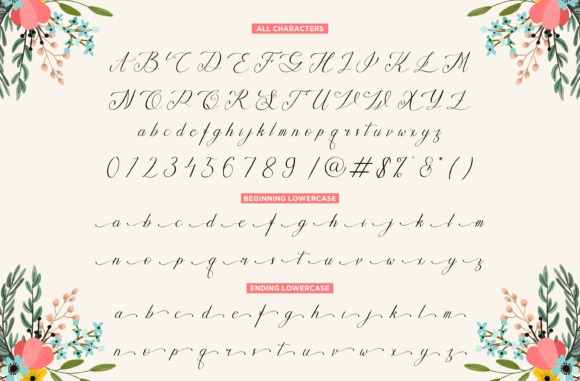 ALL CHARACTERS
A B C D E F G H I J K L M
N O P Q R S T U V W X Y Z
a b c d e f g h i j k l m n o p q r s t u r w x y z
0 1 2 3 4 5 6 7 8 9 / @ # $ % & * ( )
BEGINNING LOWERCASE
a b c d e f g h i j k l m
n o p q r s t u v w x y z
ENDING LOWERCASE
a b c d e f g h i j k l m
n o p q r s t u v w x y z